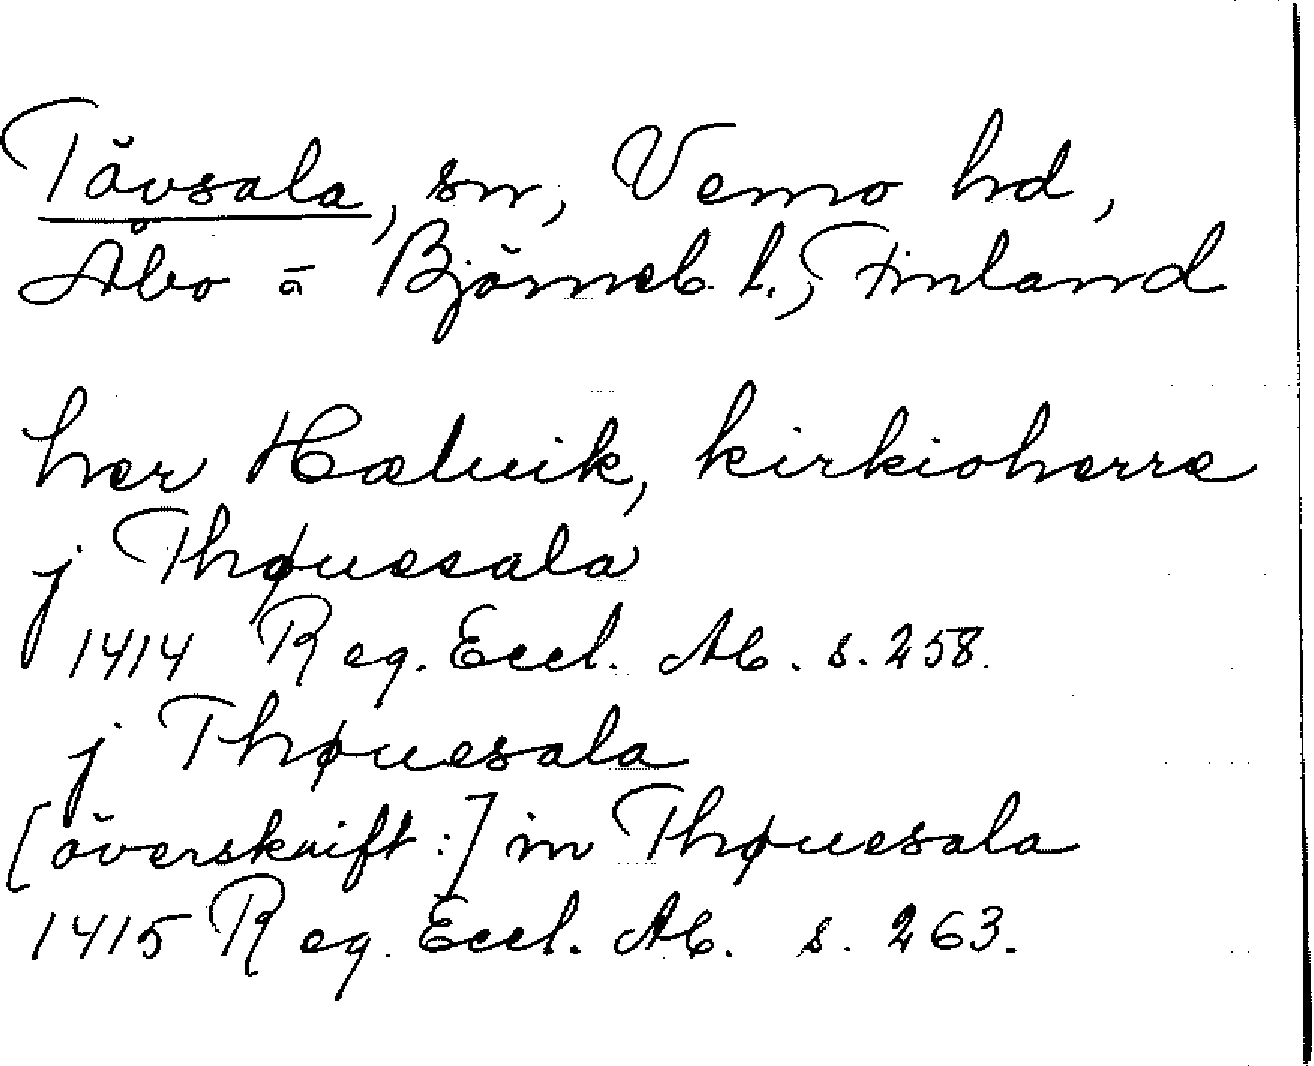 Tövsala, sn, Vemo hd,
Åbo = Björneb. l., Finland
her Hæluik, kirkioherra
j Thøuesala
1414 Reg. Eccl. Ab. s. 258.
j Thøuesala
[överskrift:] in Thøuesala
1415 Reg. Eccl. Ab. s. 263.